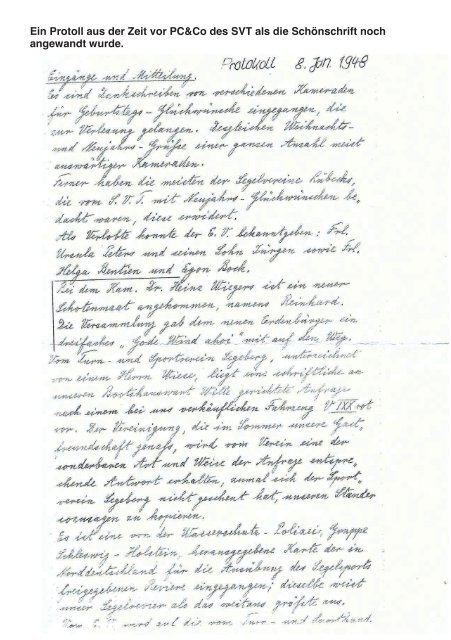 Ein Protoll aus der Zeit vor PC&Co des SVT als die Schönschrift noch
angewandt wurde.
Protokoll 8. Jan. 1948
Eingänge und Mitteilung.
Es sind Dankschreiben von verschiedenen Kameraden
für Geburtstags-Glückwünsche eingegangen, die
zur Verlesung gelangen. Desgleichen Weihnachts-
und Neujahrs-Grüße einer ganzen Anzahl meist
auswärtiger Kameraden.
Ferner haben die meisten der Segelvereine Lübecks,
die vom S.V.T. mit Neujahrs-Glückwünschen be,
dacht waren, diese erwidert.
Als Verlobte konnte der E.V. bekanntgeben: Frl.
Ursula Peters und seinen Sohn Jürgen sowie Frl.
Helga Rentien und Egon Bock.
Bei dem Kam. Dr. Heinz Wiegers ist ein neuer
Schotenmaat angekommen, namens Reinhard.
Die Versammlung gab dem neuen Erdenbürger ein
dreifaches „Gode Wind ahoi" mit auf den Weg.
Vom Turn- und Sportverein Segeberg, unterzeichnet
von einem Herrn Wiese, liegt eine schriftliche an
unseren Bootshauswart Witte gerichtete Anfrage
nach einem bei uns verkäuflichen Fahrzeug V IXX rot
vor. Der Vereinigung, die im Sommer unsere Gast,
freundschaft genoß, wird vom Verein eine der
sonderbaren Art und Weise der Anfrage entspre,
chende Antwort erhalten, zumal sich der Sport,
verein Segeberg nicht gescheut hat, unseren Stander
sozusagen zu kopieren.
Es ist eine von der Wasserschutz-Polizei, Gruppe
Schleswig-Holstein, herausgegebene Karte der in
Norddeutschland für die Ausübung des Segelsports
freigegebenen Reviere eingegangen; dieselbe weist
unser Segelrevier als das weitaus größte aus.
Vom E.V. wird auf die vom Turn- und